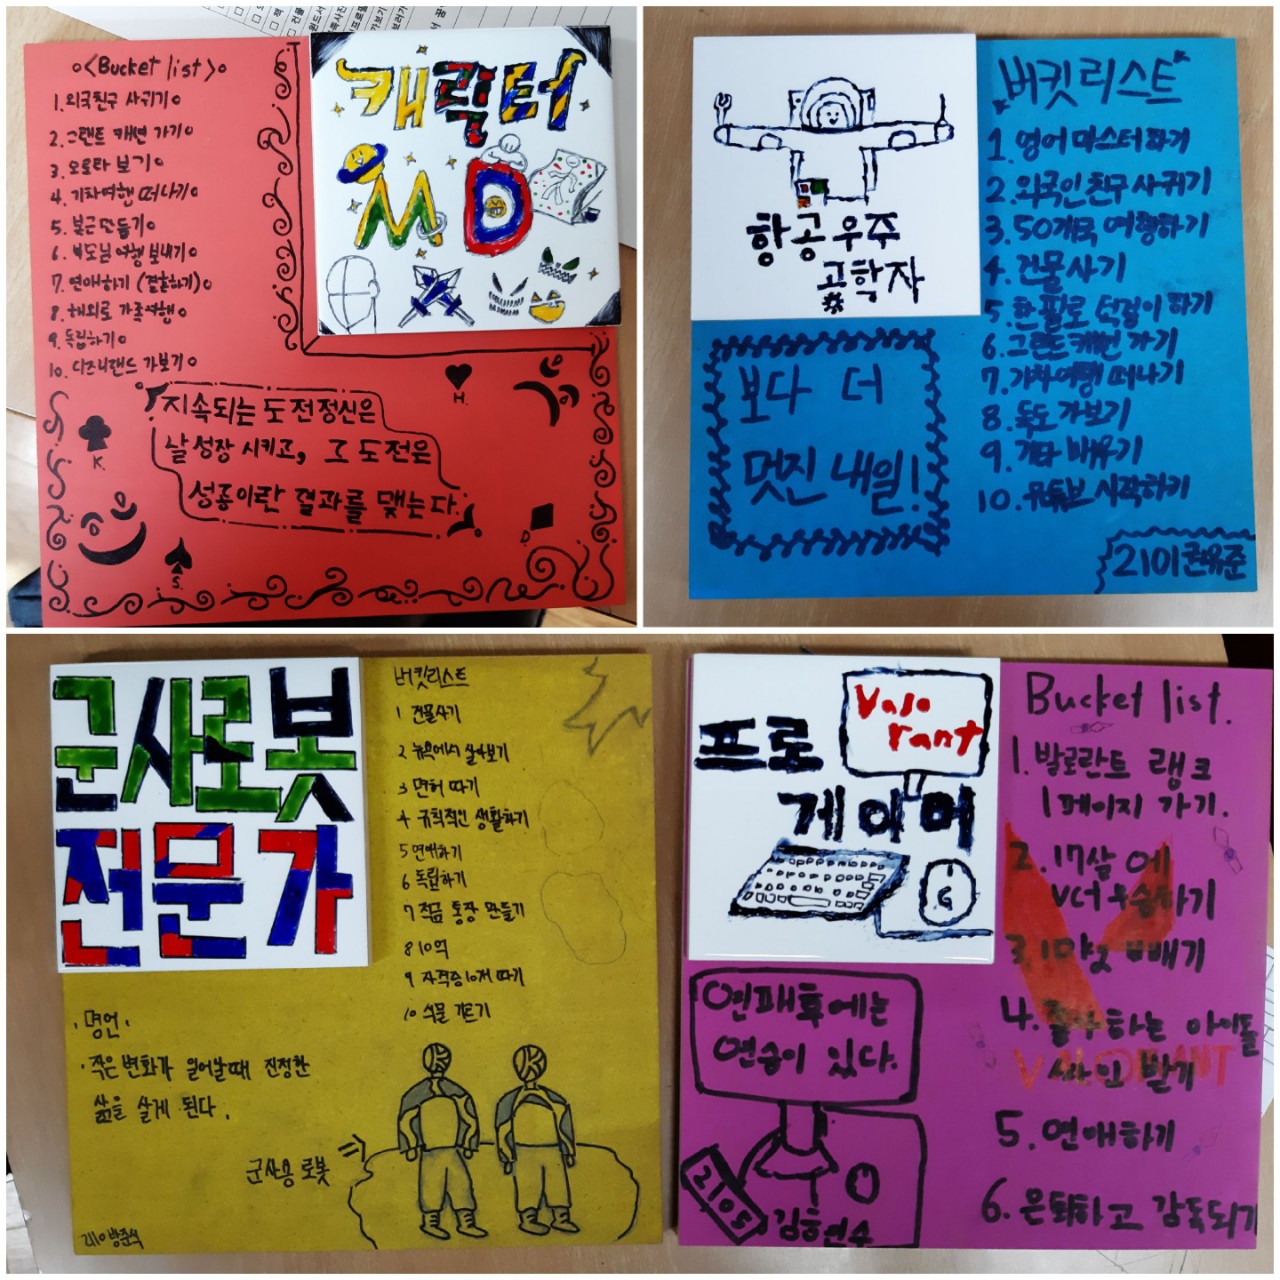 <Bucket list>
1. 외국친구 사귀기
2. 그랜드 캐년 가기
3. 오로라 보기
4. 기차여행 떠나기
5. 복근만들기
6. 부모님 여행 보내기
7. 연애하기 (결혼하기)
8. 해외로 가족여행
9. 독립하기
10. 디즈니랜드 가보기
캐릭터
MD
지속되는 도전정신은
날 성장 시키고, 그 도전은
성공이란 결과를 맺는다.
H.
K.
D
S.
항공우주
공학자
버킷리스트
1. 영어 마스터하기
2. 외국인 친구 사귀기
3. 50개국 여행하기
4. 건물사기
5. 한 팔로 턱걸이 하기
6. 그랜드캐년 가기
7. 기차여행 떠나기
8. 독도 가보기
9. 기타 배우기
10. 유튜브 시작하기
보다 더
멋진 내일!
2101 권유준
군사로봇
전문가
버킷리스트
1 건물사기
2 뉴욕에서 살아보기
3 면허 따기
4 규칙적인 생활하기
5 연애하기
6 독립하기
7 적금 통장 만들기
8 10억
9 자격증 10개 따기
10 식물 기르기
명언
작은 변화가 일어날때 진정한
삶을 살게 된다.
군사용 로봇
2110 방준석
프로
게이머
Valo
rant
G
Bucket list.
1. 발로란트 랭크
1페이지 가기.
2. 17살 에
VCT 우승하기
3. 빼기
4. 좋아하는 아이돌
싸인 받기
VALORANT
5. 연애하기
6. 은퇴하고 감독되기
연패후에는
연승이 있다.
2105